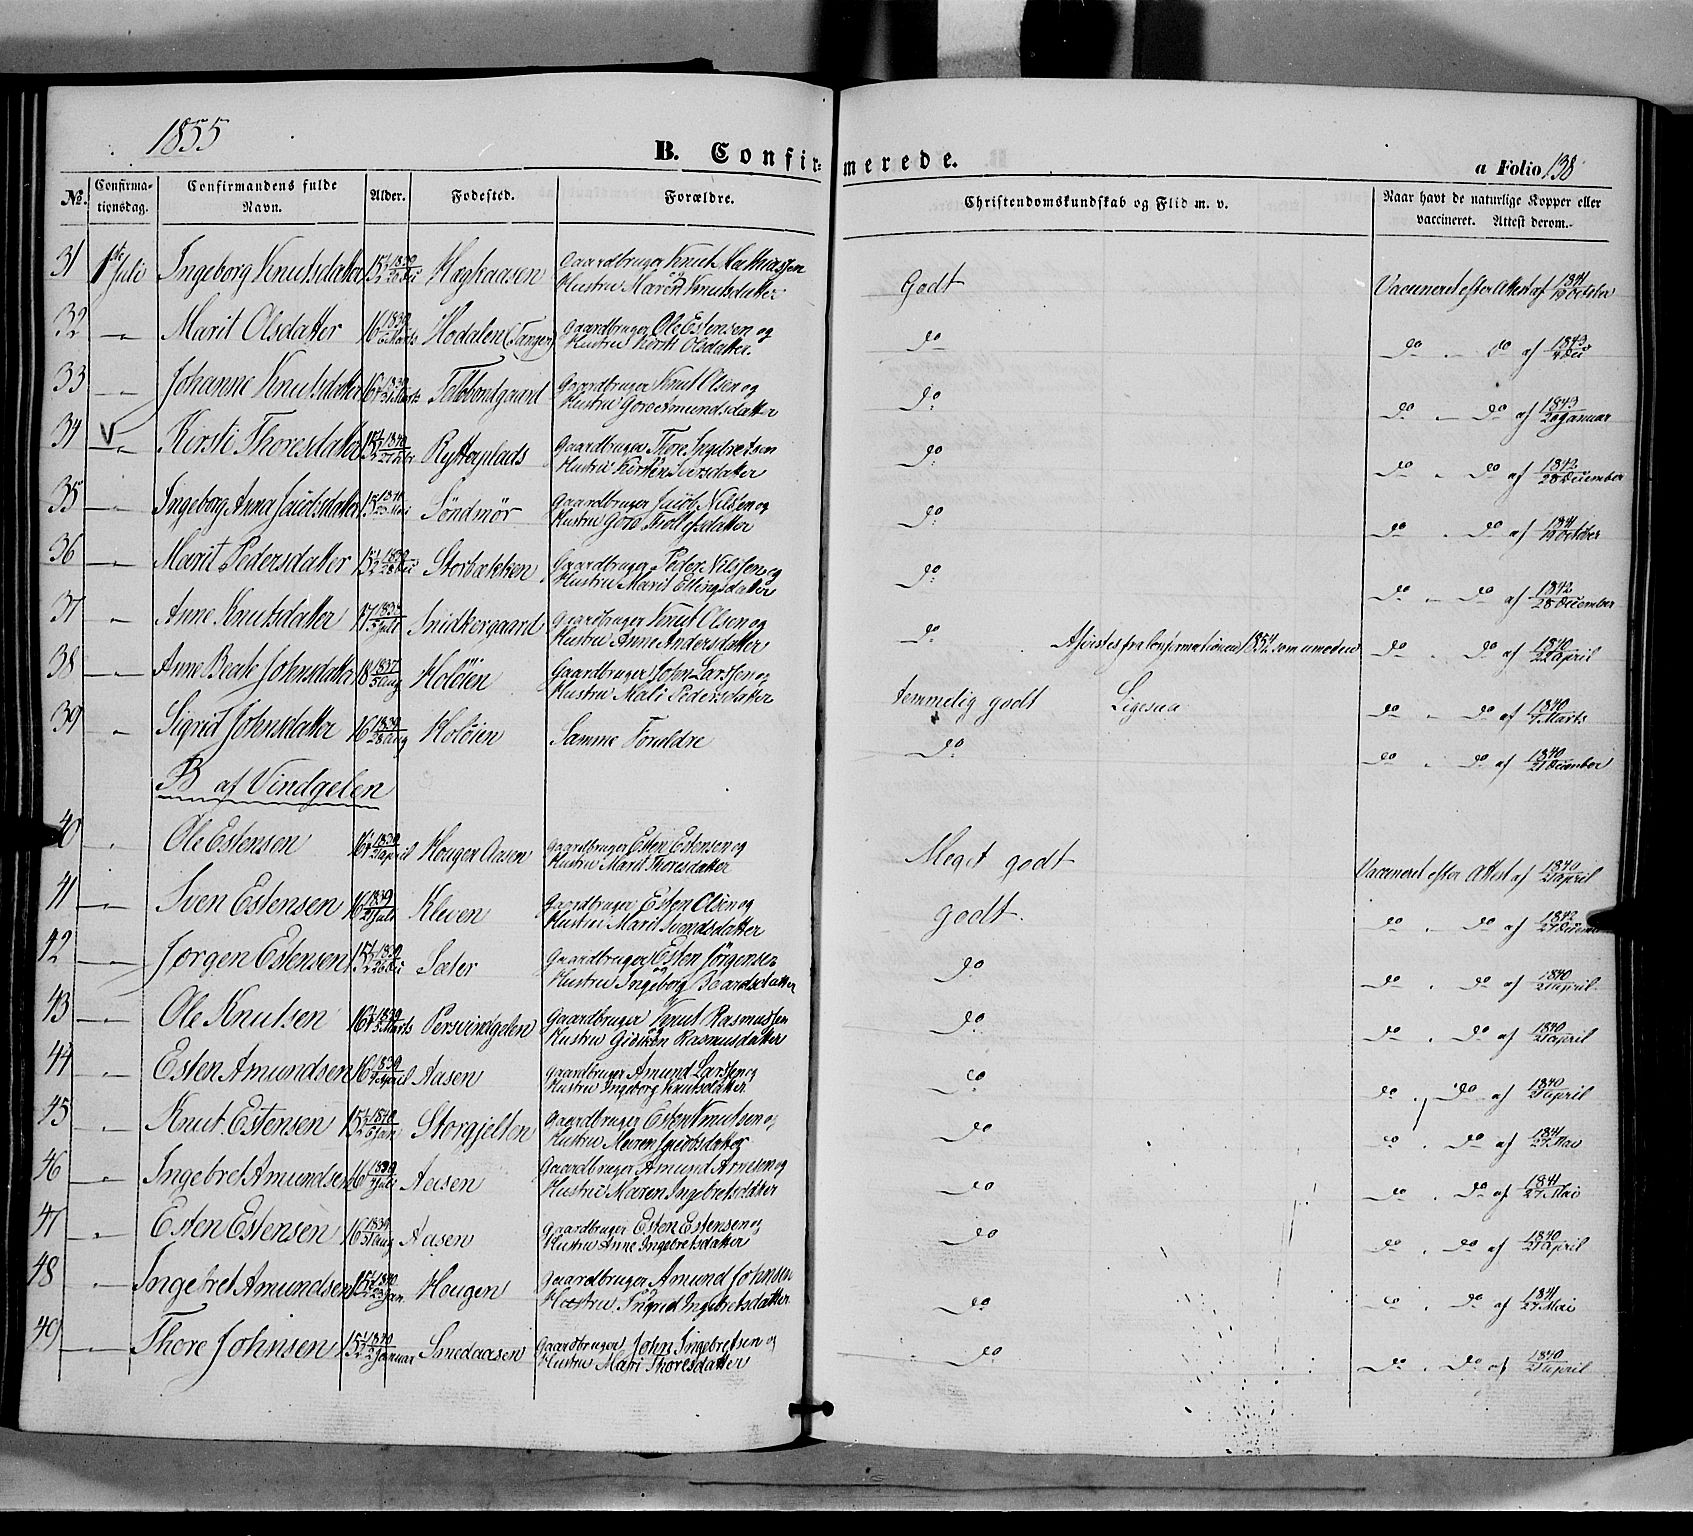 1855
B. Confirmerede.
a Folio 138
No.
Confirmationsdag.
Confirmandens fulde Navn.
Alder.
Fødested.
Forældre.
Christendomskundskab og Flid m. v.
Naar havt de naturlige Kopper eller vaccineret. Attest derom.
31 1ste Juli Ingeborg Knutsdatter 15½ 1839 Gaardbruger Knut Mathiassen og
Hustru Maren Knutsdatter Godt Vaccineret efter Attest af 1841 19 October
32 " Marit Olsdatter 16 1839 Marts Hodalen (Tangen) Gaardbruger Ole Estensen og
Hustru Kirsti Olsdatter. Do Do " Do af 1843 4 Dec
33 " Johanne Knutsdatter 16 1839 Marts Gaardbruger Knut Olsen og
Hustru Goro Amundsdatter Do Do " Do af 1843 20 Januar
34 V " Kirsti Thoresdatter 15½ 1840 Rytterplads Gaardbruger Thore Ingebretsen
Hustru Kirsten Iversdatter Do Do " Do af 1842 28 December
35 " Ingeborg Anna Jacobsdatter 15 Mai Söndmör Gaardbruger Jacob Nilsen og
Hustru Goro Do Do " Do af 1841 19 October
36 " Marit Pedersdatter 15½ 1839 28 Dec Storbækken Gaardbruger Peder Nilssen og
Hustru Marit Ellingsdatter Do Do " Do af 1842 28 December
37 " Anne Knutsdatter 17 Juli Snidkergaard Gaardbruger Knut Olsen og
Hustru Anne Andersdatter Do Afvistes fra Confirmationen 1854 som umoden Do " Do af 1840 22 April
38 " Anne Beate Johnsdatter 18 1837 5 Aug Holöien Gaardbruger John Larssen og
Hustru Mali Pedersdatter temmelig godt Ligesaa Do " Do af 1840 Marts
39 " Sigrid Johnsdatter 16 1839 28 Aug Holöien Samme Forældre Do Do " Do af 1840 21 December
B af Vindgelen
40 " Ole Estensen 16 1839 21 April Hougen Aasen Gaardbruger Esten Estensen og
Hustru Marit Thoresdatter Meget godt Vaccineret efter Attest af 1840 21 April
41 " Sven Estensen 16 1839 Juli Kleven Gaardbruger Esten Olsen og
Hustru Marit Svendsdatter godt. Do " Do af 1842 27 December
42 " Jørgen Estensen 15½ 1839 26 Dec Sæter Gaardbruger Esten Jörgensen
og Hustru Ingeborg Baardsdatter Do Do " Do af 1840 21 April
43 " Ole Knutsen 16 1839 Marts Persvindgelen Gaardbruger Knut Rasmussen
og Hustru Gidsken Rasmusdatter Do Do " Do af 1840 21 April
44 " Esten Amundsen 16 1839 April Aasen Gaardbruger Amund Larssen og
Hustru Ingeborg Knutsdatter Do Do " Do af 1840 21 April
45 " Knut Estensen 15½ 1840 6 Jan Storgjelten Gaardbruger Esten Knutsen og
Hustru Maren Jacobsdatter Do Do " Do af 1841 27 Mai
46 " Ingebret Amundsen 16 1839 Juli Aasen Gaardbruger Amund Arnesen og
Hustru Maren Ingebretsdatter Do Do " Do af 1841 27 Mai
47 " Esten Estensen 16 1839 31 Aug Aasen Gaardbruger Esten Estensen og
Hustru Anne Ingebretsdatter Do Do " Do af 1840 21 April
48 " Ingebret Amundsen 15½ 1840 Jan Hougen Gaardbruger Amund Johnsen
og Hustru Ingrid Ingebretsdatter Do Do " Do af 1841 27 Mai
49 " Thore Johnsen 15½ 1840 2 Januar Smedaasen Gaardbruger John Ingebretsen og
Hustru Mari Thoresdatter Do Do " Do af 1840 21 April